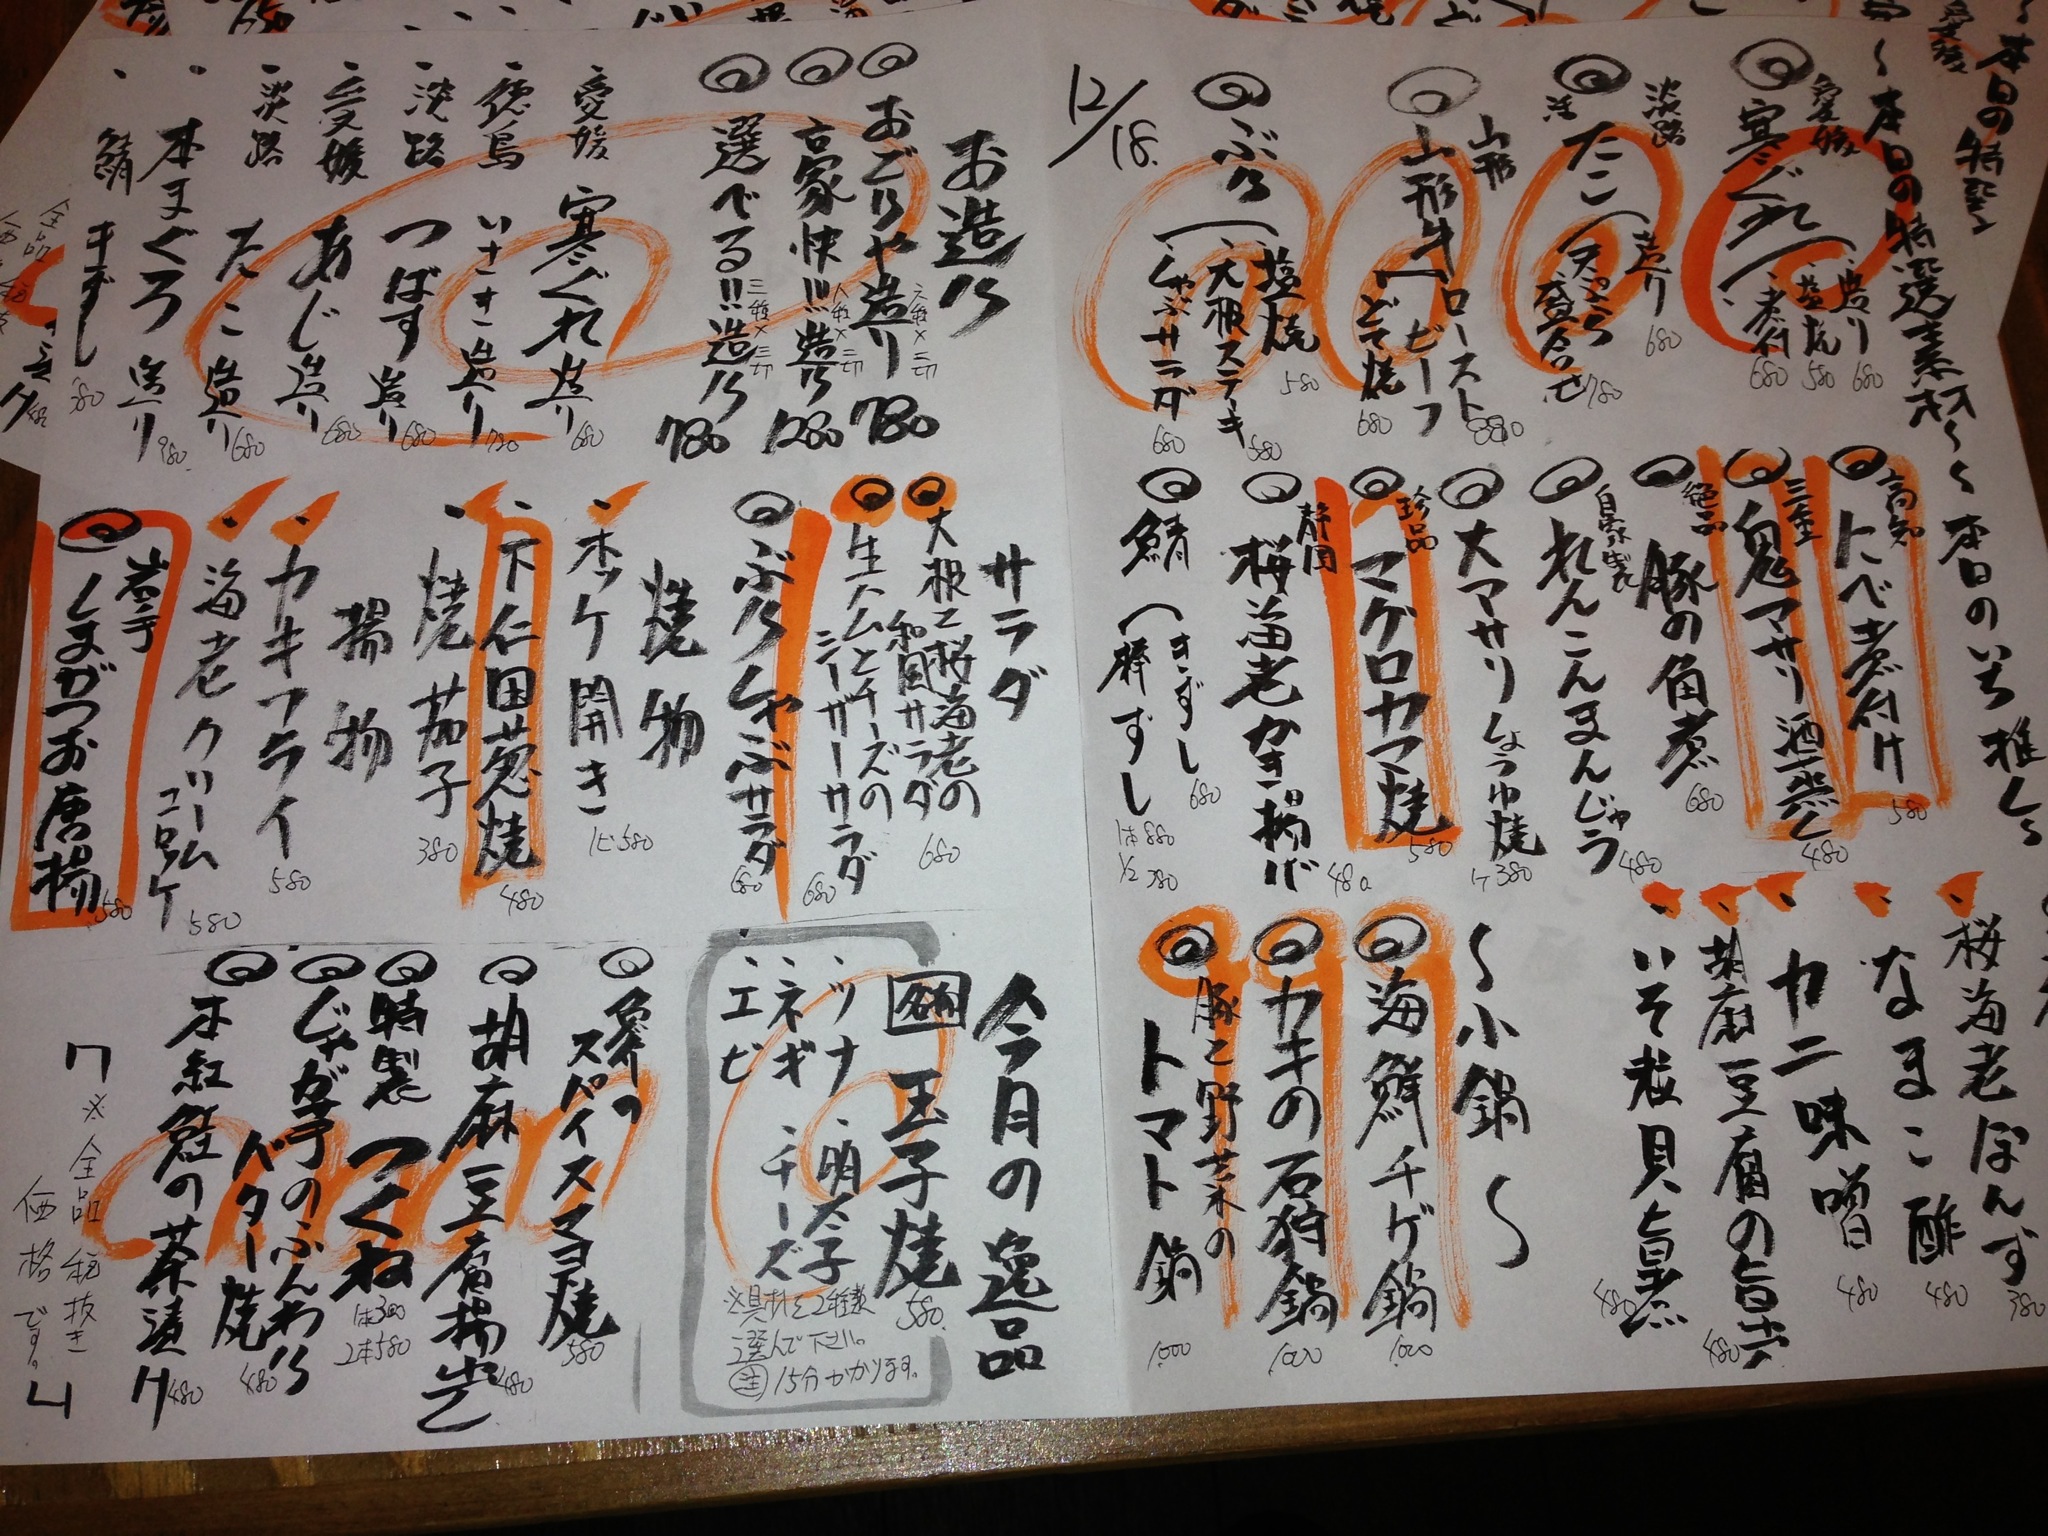 〜本日の特選素材〜
愛媛
寒ぐれ
造り 680
塩焼 580
煮付 680
淡路
活 たこ
造り 680
天ぷら盛合せ 780
山形
山形牛
ローストビーフ 880
どて焼 680
ぶり
塩焼 580
大根ステーキ 680
しゃぶサラダ 680
12/18.
お造り
おごりや造り 780
豪快!!!造り 1280
選べる!!造り 三種×三切 780
愛媛 寒ぐれ造り 680
徳島 いさき造り 780
淡路 つばす造り 680
愛媛 あじ造り 680
淡路 たこ造り 680
本まぐろ造り 980
鯖きずし 780
〜本日のいち推し〜
高知 にべ煮付け 580
三重 鬼マサリ酒蒸し 480
絶品 豚の角煮 680
自家製 れんこんまんじゅう 480
大マサリしょうゆ焼 1ケ380
珍品 マグロカマ焼 580
静岡 桜海老かき揚げ 480
鯖
きずし 680
棒ずし 1本880 1/2 780
サラダ
大根と桜海老の和風サラダ 680
生ハムとチーズのシーザーサラダ 680
ぶりしゃぶサラダ 680
焼物
ホッケ開き 1ピ580
下仁田葱焼 480
焼茄子 380
揚物
カキフライ 580
海老クリームコロッケ 580
岩手 しまがつお唐揚 580
桜海老ぽんず 380
なまこ酢 480
カニ味噌 480
胡麻豆腐の旨汁 480
いそ巻貝旨煮 480
〜小鍋〜
海鮮チゲ鍋 1,000
カキの石狩鍋 1,000
豚と野菜のトマト鍋 1,000
今月の逸品
玉子焼 580
・ツナ ・明太子
・ネギ ・チーズ
・エビ
※具材を2種類
選んで下さい。
注 15分かかります。
スパイスマヨ焼 580
胡麻豆腐揚出し 480
特製つくね 1本300 2本580
じゃが芋のふんわりバター焼 480
本紅鮭の茶漬け 480
※全品税抜き
価格です。